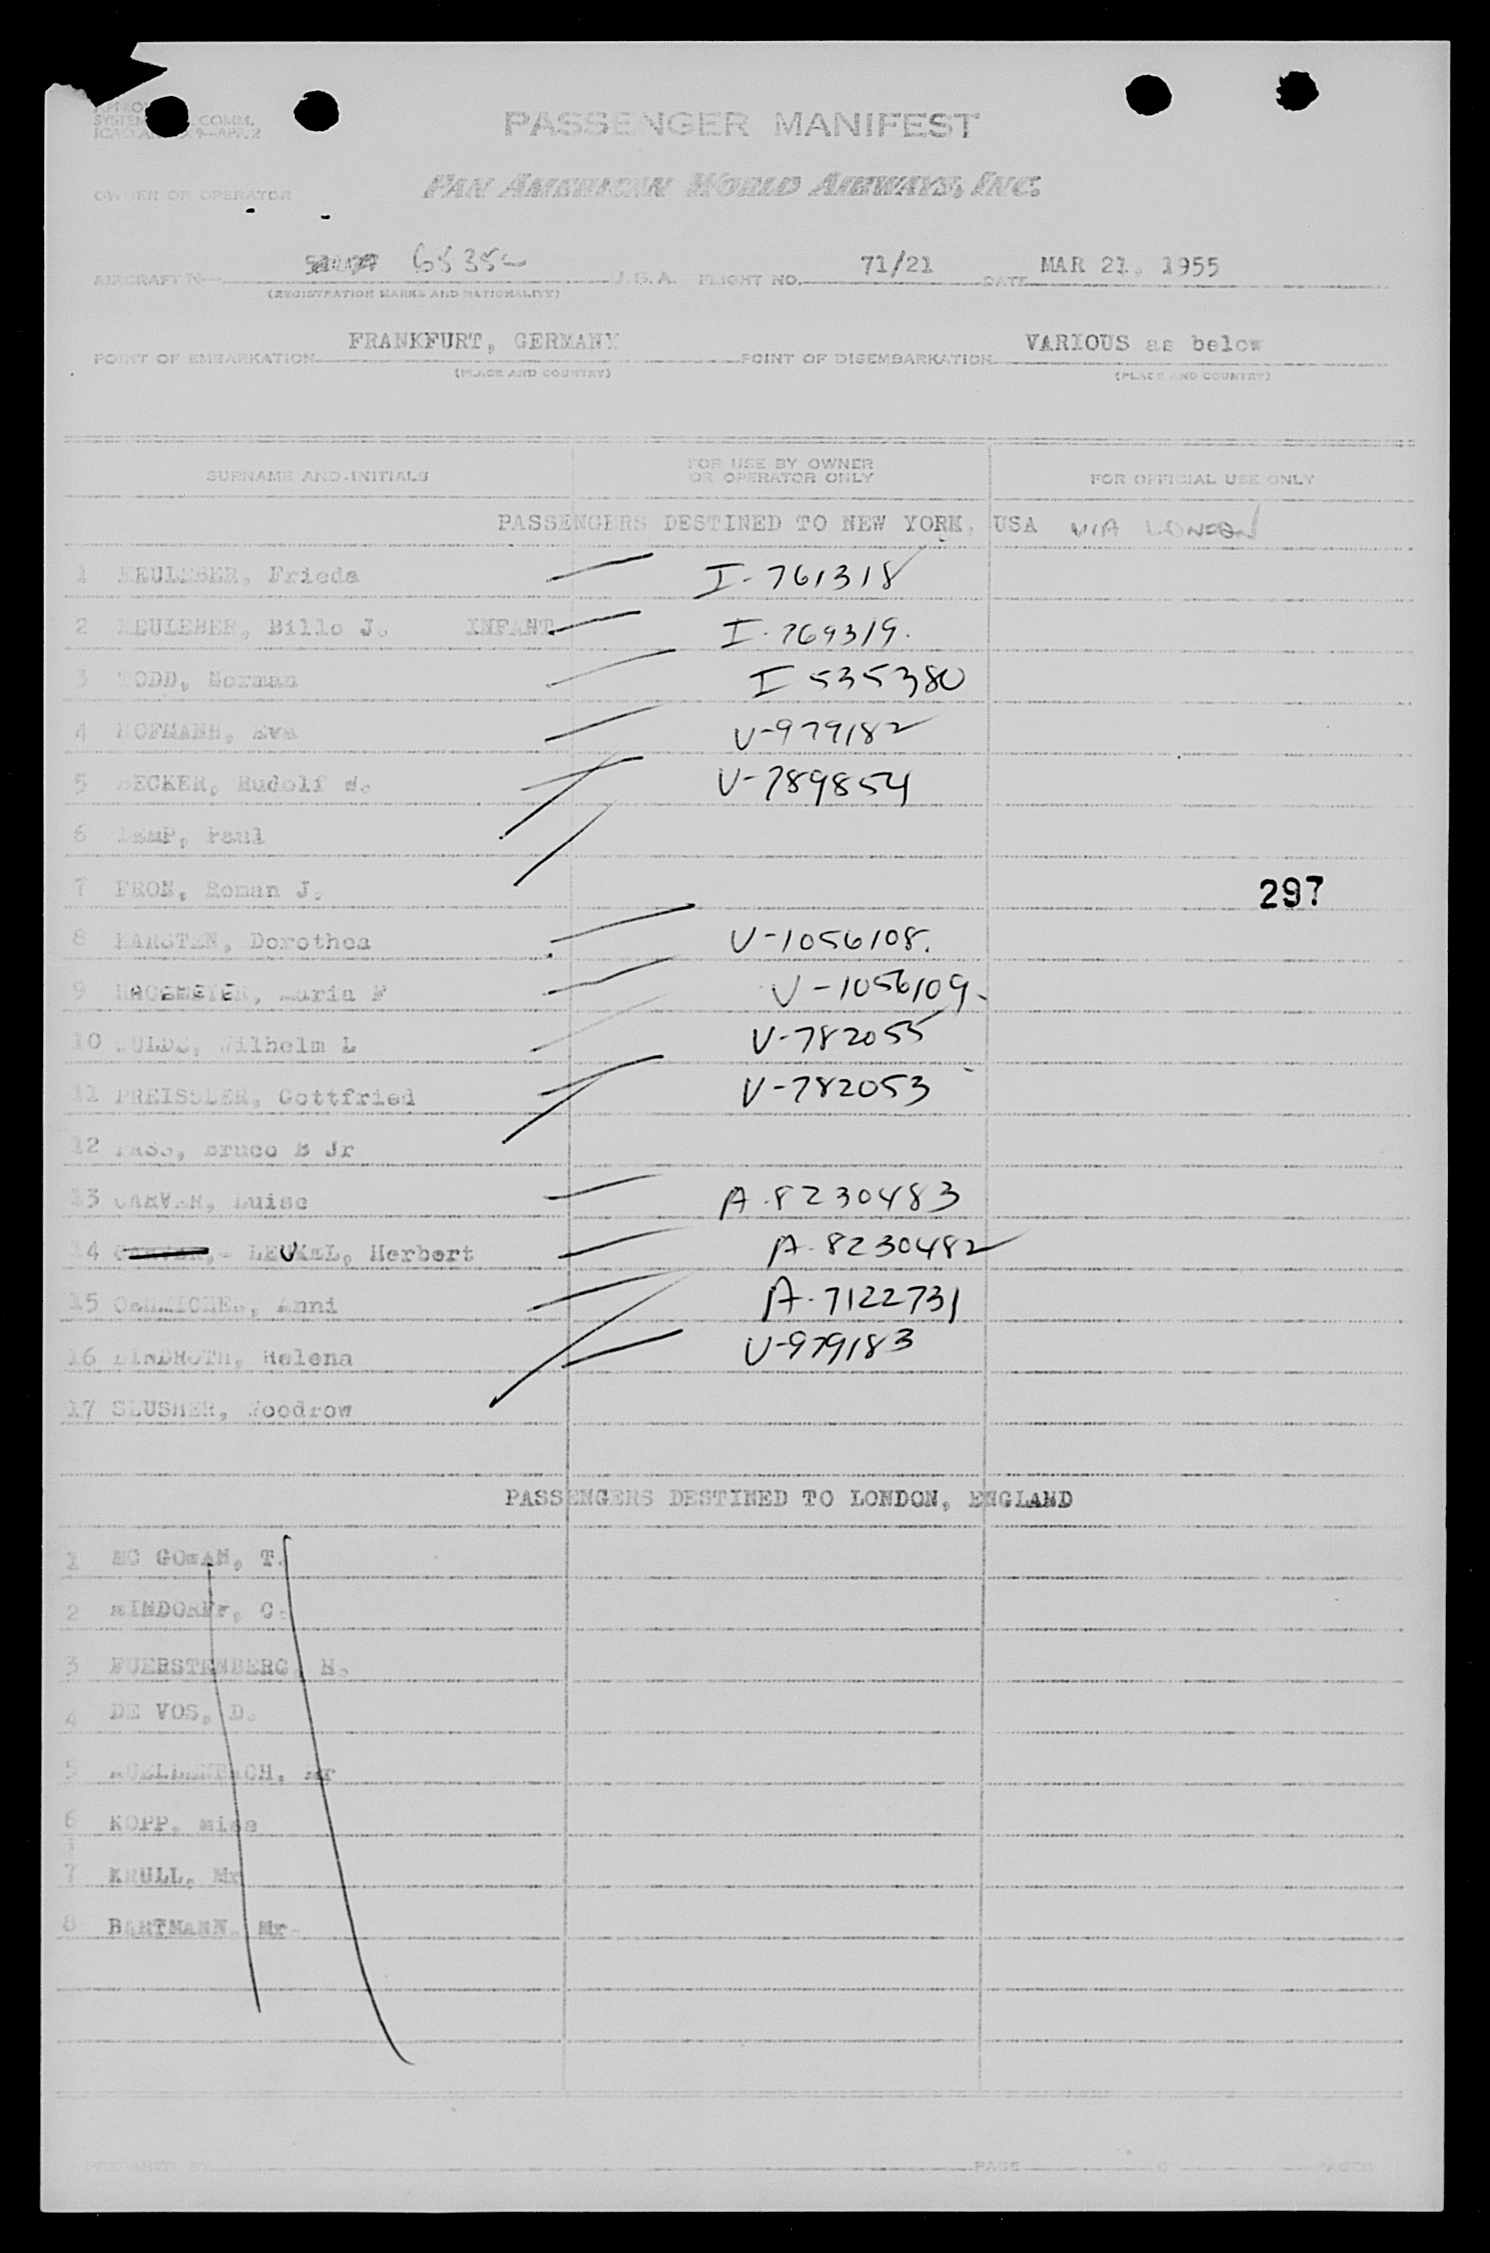 COMM.
PASSENGER MANIFEST
OWNER OR OPERATOR
PAN AMERICAN WORLD AIRWAYS, INC.
AIRCRAFT N U.S.A. FLIGHT NO. 71/21 DATE MAR 21, 1955
(REGISTRATION MARKS AND NATIONALITY)
POINT OF EMBARKATION FRANKFURT, GERMANY POINT OF DISEMBARKATION VARIOUS as below
(PLACE AND COUNTRY) (PLACE AND COUNTRY)
SURNAME AND INITIALS FOR USE BY OWNER OR OPERATOR ONLY FOR OFFICIAL USE ONLY
PASSENGERS DESTINED TO NEW YORK, USA VIA LONDON
1 Frieda I-761318
2 Billo J. INFANT I-769319.
3 Norman I 535380
4 HOFMANN, Eva V-979182
5 BECKER, Rudolf V-789854
6 Paul
7 PRON, Roman J.
297
8 KARSTEN, Dorothea V-1056108.
9 HAGEMEYER, Maria F V-1056109-
10 Wilhelm L V-782055
11 PREISSLER, Gottfried V-782053
12 Bruce B Jr
13 CARVER, Luise A-8230483
14 LEUKEL, Herbert A-8230482
15 Anni A-7122731
16 LINDROTH, Helena V-979183
17 SLUSHER, Woodrow
PASSENGERS DESTINED TO LONDON, ENGLAND
1 MC GOWAN, T.
2 C.
3 FUERSTENBERG, H.
4 DE VOS, D.
5 Mr
6 KOPP, Miss
7 KRULL, Mr
8 BARTMANN, Mr
PREPARED BY PAGE PAGES